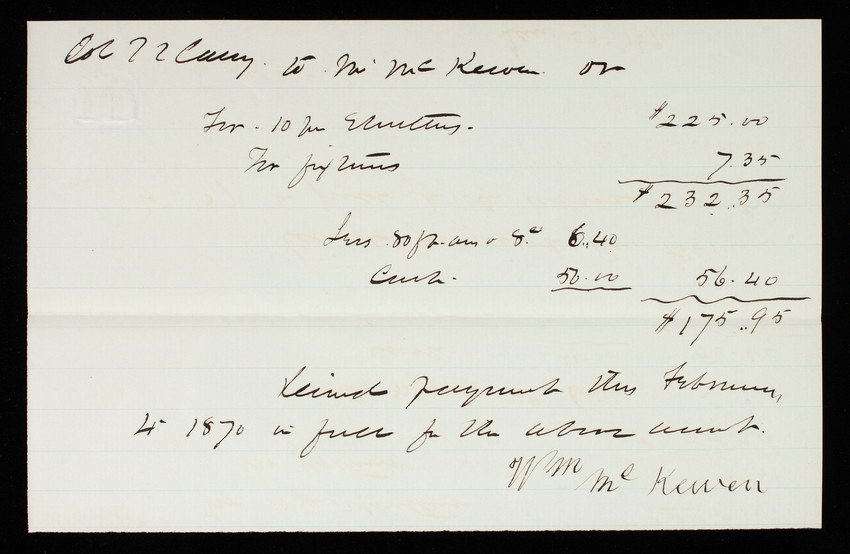 Col T L Casey to Wm McKewen Dr
For 10 pr Shutters. $225.00
For fixtures 7.35
$232.35
Less 80 8c 6.40
Cash. 50.00 56.40
$175.95
Recived payment this February
4 1870 in full for the above acount.
Wm McKewen